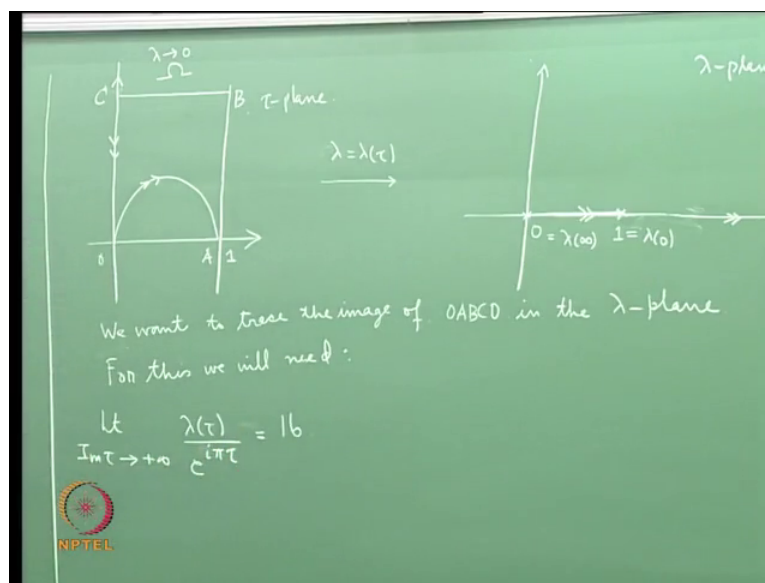 λ→0
Ω
C
B
τ-plane.
λ=λ(τ)
λ-plan
0
A
1
0=λ(∞) 1=λ(0)
We want to trace the image of OABCO in the λ-plane
For this we will need:
Lt λ(τ)/e^{iπτ} = 16
Imτ→+∞
NPTEL